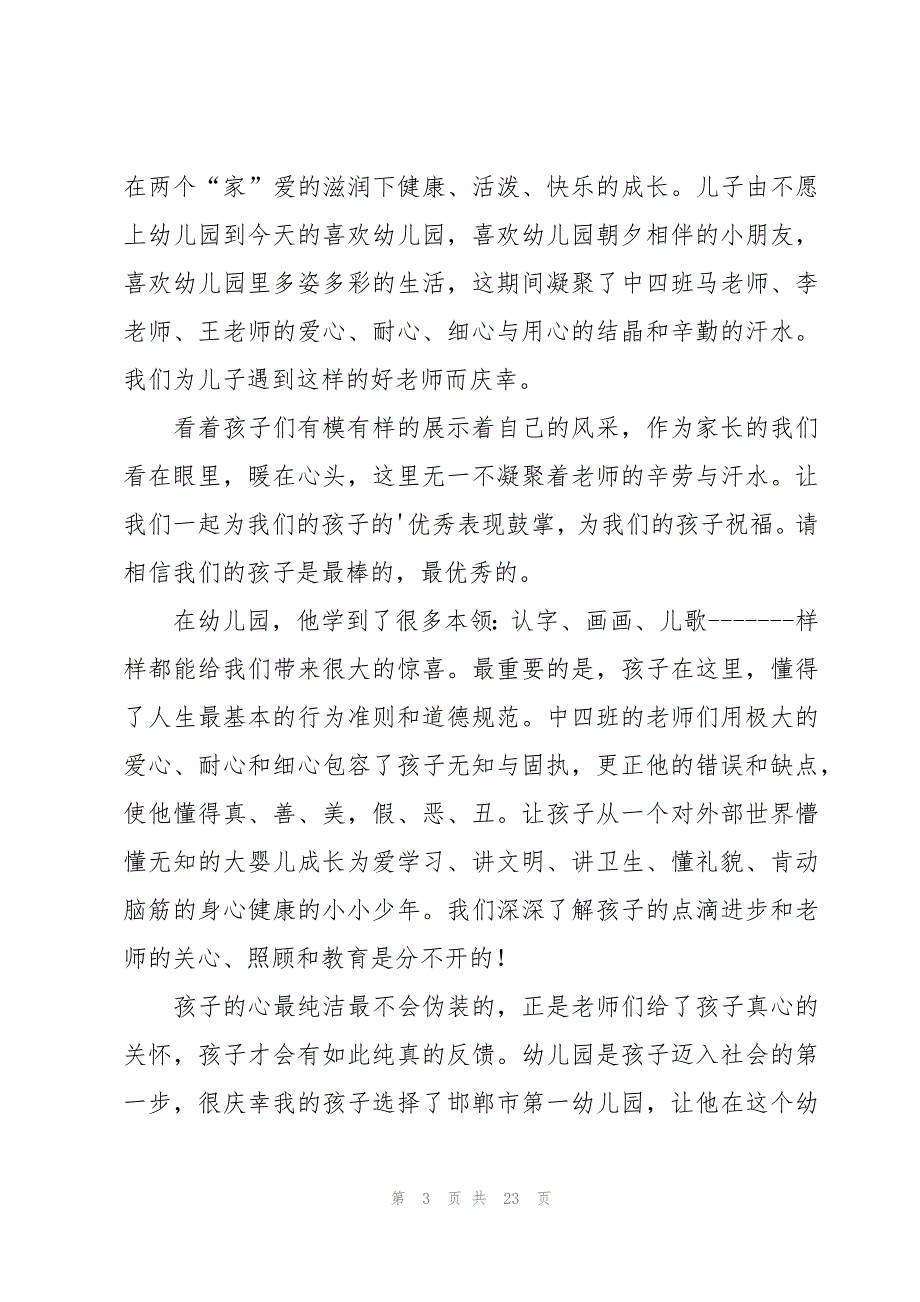 在两个“家”爱的滋润下健康、活泼、快乐的成长。儿子由不愿
上幼儿园到今天的喜欢幼儿园，喜欢幼儿园朝夕相伴的小朋友，
喜欢幼儿园里多姿多彩的生活，这期间凝聚了中四班马老师、李
老师、王老师的爱心、耐心、细心与用心的结晶和辛勤的汗水。
我们为儿子遇到这样的好老师而庆幸。
看着孩子们有模有样的展示着自己的风采，作为家长的我们
看在眼里，暖在心头，这里无一不凝聚着老师的辛劳与汗水。让
我们一起为我们的孩子的'优秀表现鼓掌，为我们的孩子祝福。请
相信我们的孩子是最棒的，最优秀的。
在幼儿园，他学到了很多本领：认字、画画、儿歌-------样
样都能给我们带来很大的惊喜。最重要的是，孩子在这里，懂得
了人生最基本的行为准则和道德规范。中四班的老师们用极大的
爱心、耐心和细心包容了孩子无知与固执，更正他的错误和缺点，
使他懂得真、善、美，假、恶、丑。让孩子从一个对外部世界懵
懂无知的大婴儿成长为爱学习、讲文明、讲卫生、懂礼貌、肯动
脑筋的身心健康的小小少年。我们深深了解孩子的点滴进步和老
师的关心、照顾和教育是分不开的！
孩子的心最纯洁最不会伪装的，正是老师们给了孩子真心的
关怀，孩子才会有如此纯真的反馈。幼儿园是孩子迈入社会的第
一步，很庆幸我的孩子选择了邯郸市第一幼儿园，让他在这个幼
第 3 页 共 23 页